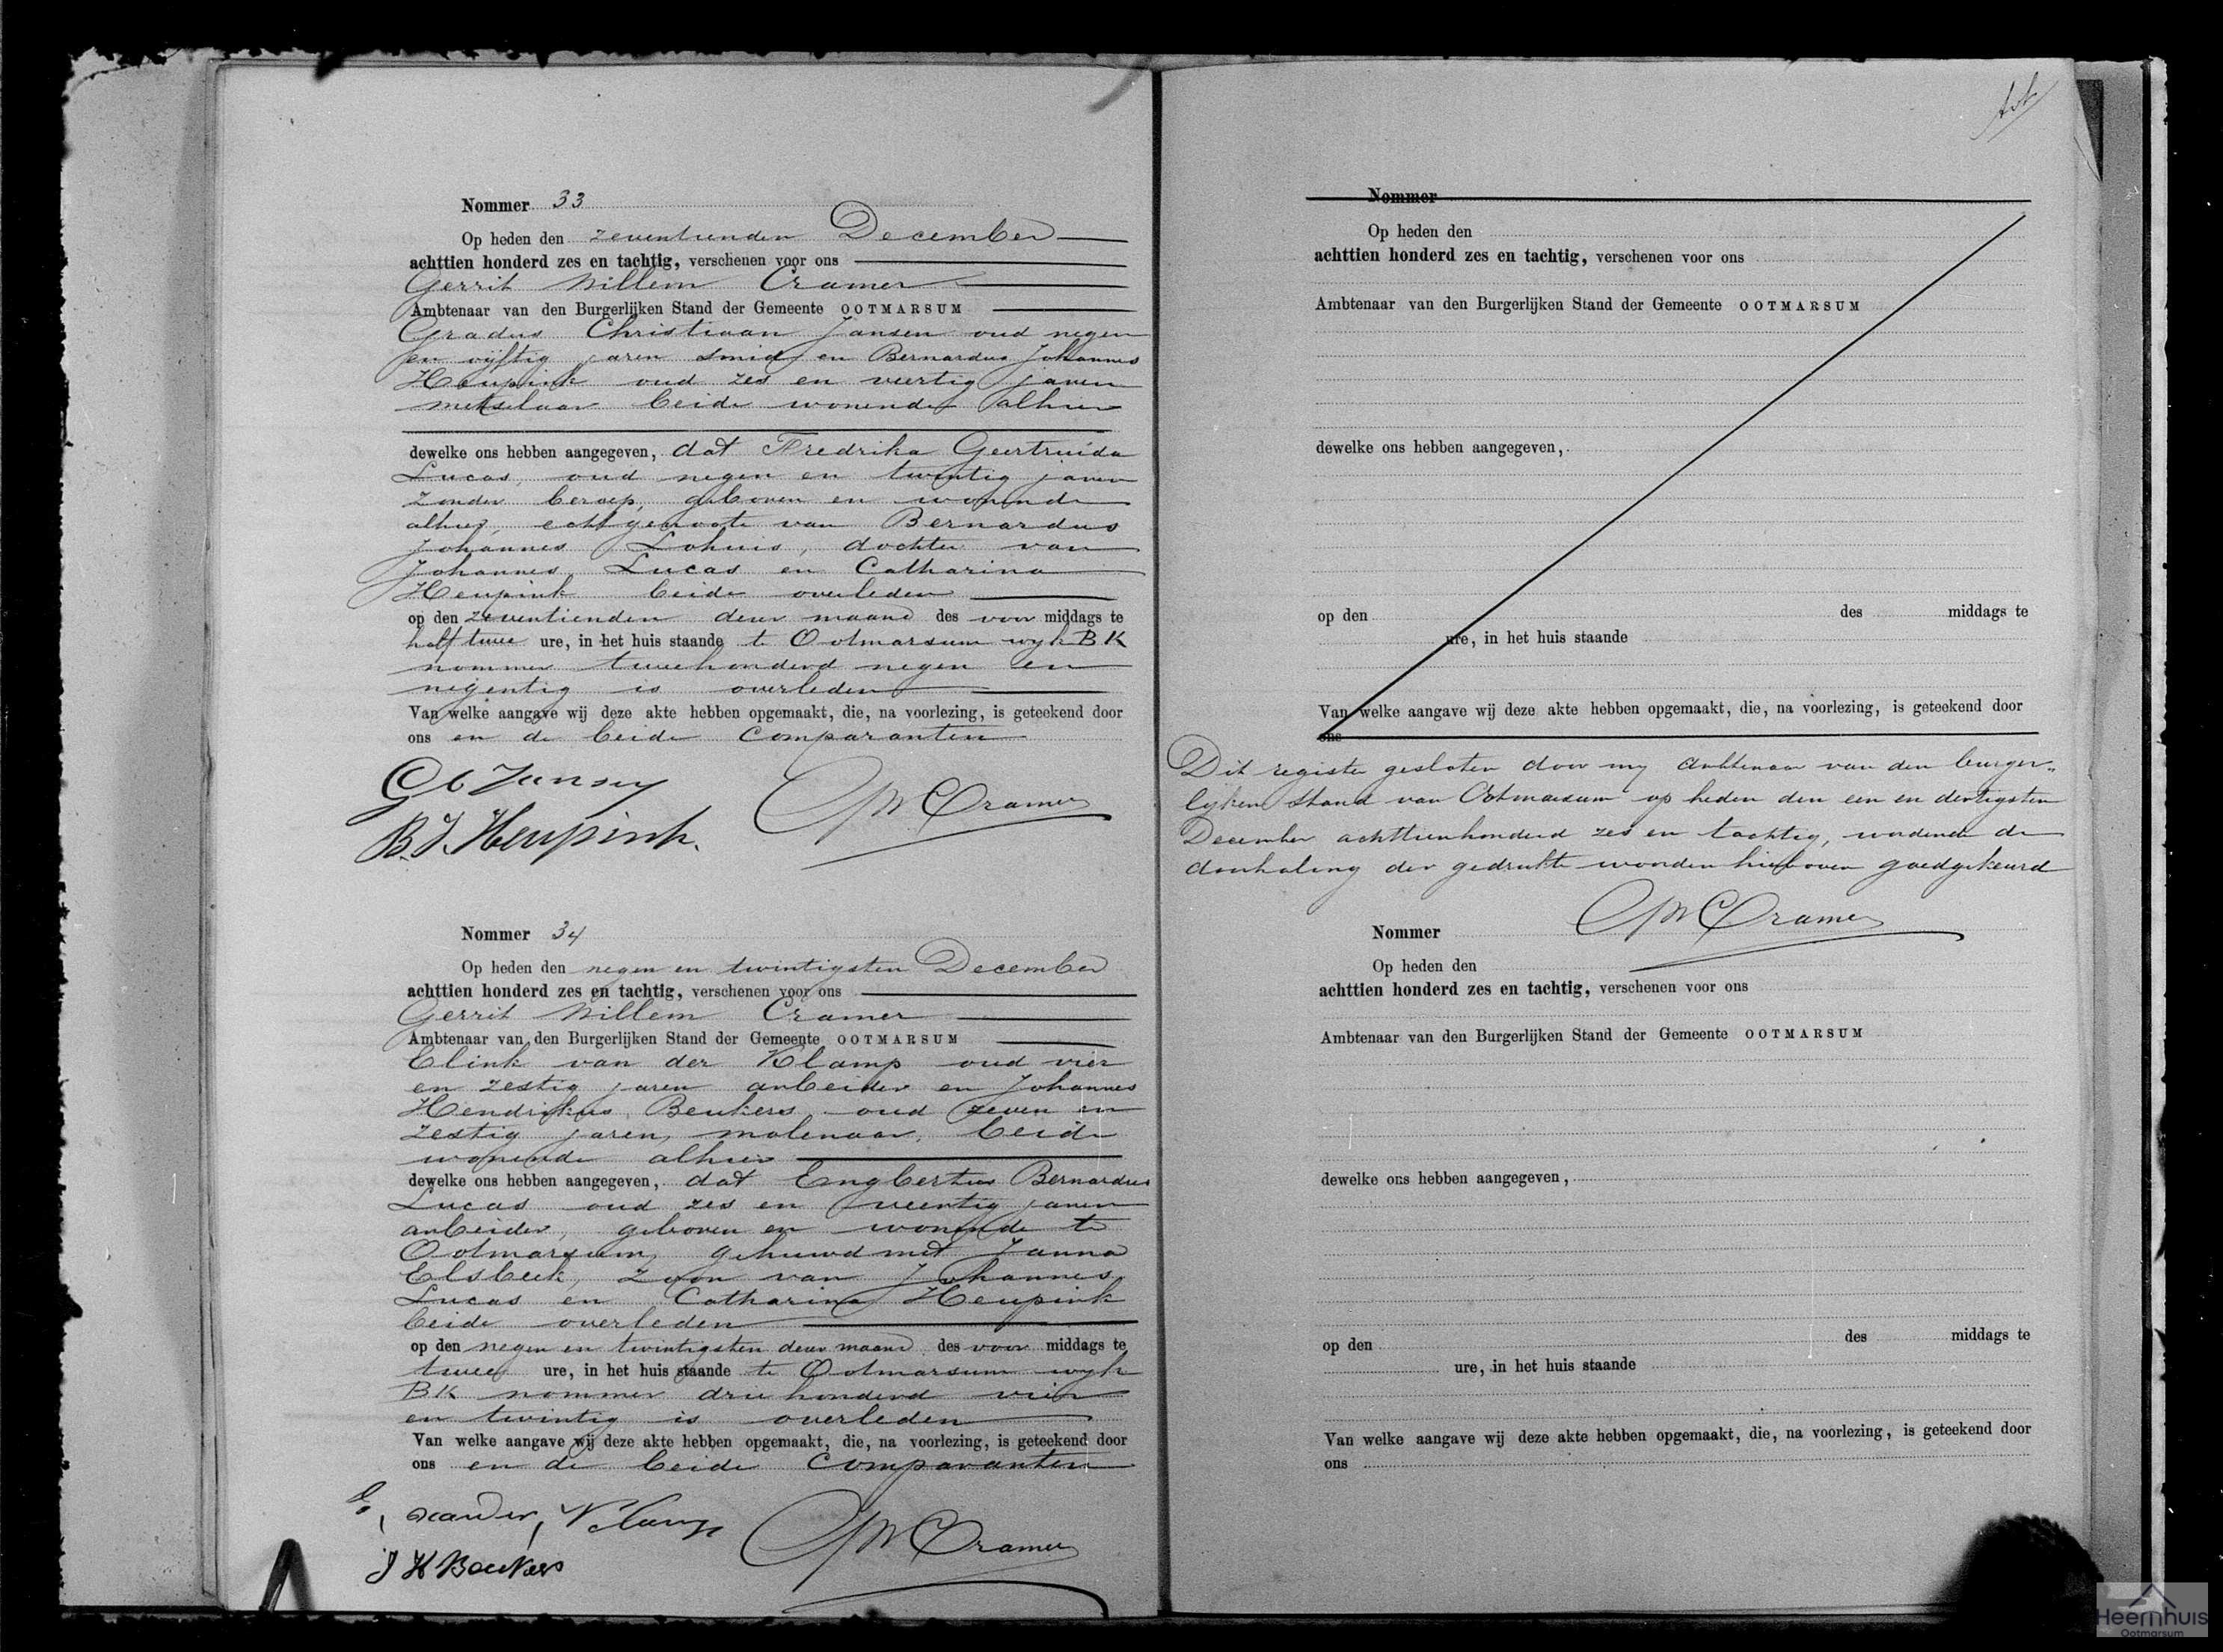 Nommer 33
Op heden den zeventienden December
achttien honderd zes en tachtig, verschenen voor ons
Gerrit Willem Cramer
Ambtenaar van den Burgerlijken Stand der Gemeente OOTMARSUM
Gradus Christiaan Jansen oud negen
en vijftig jaren smid, en Bernardus Johannes
Heupink oud zes en veertig jaren
metselaar beide wonende alhier
dewelke ons hebben aangegeven, dat Fredrika Geertruida
Lucas, oud negen en twintig jaren
zonder beroep, geboren en wonende
alhier, echtgenoote van Bernardus
Johannes Lohuis, dochter van
Johannes Lucas en Catharina
Heupink beide overleden
op den zeventienden dezer maand des voor middags te
half twee ure, in het huis staande te Ootmarsum wijk BK
nommer tweehonderd negen en
negentig is overleden
Van welke aangave wij deze akte hebben opgemaakt, die, na voorlezing, is geteekend door
ons en de beide Comparanten
Jansen
B.J. Heupink.
GWCramer
Nommer 34
Op heden den negen en twintigsten December
achttien honderd zes en tachtig, verschenen voor ons
Gerrit Willem Cramer
Ambtenaar van den Burgerlijken Stand der Gemeente OOTMARSUM
Elink van der Klamp oud vier
en zestig jaren arbeider en Johannes
Hendrikus Beukers oud zeven en
zestig jaren, molenaar, beide
wonende alhier
dewelke ons hebben aangegeven, dat Engbertus Bernardus
Lucas oud zes en veertig jaren
arbeider, geboren en wonende te
Ootmarsum, gehuwd met Janna
Elsbeek, zoon van Johannes
Lucas en Catharina Heupink
beide overleden
op den negen en twintigsten dezer maand des voor middags te
twee ure, in het huis staande te Ootmarsum wijk
BK nommer driehonderd vier
en twintig is overleden
Van welke aangave wij deze akte hebben opgemaakt, die, na voorlezing, is geteekend door
ons en de beide Comparanten
E, vander, Klamp
J H Beukers
GWCramer
Nommer
Op heden den
achttien honderd zes en tachtig, verschenen voor ons
Ambtenaar van den Burgerlijken Stand der Gemeente OOTMARSUM
dewelke ons hebben aangegeven,
op den des middags te
ure, in het huis staande
Van welke aangave wij deze akte hebben opgemaakt, die, na voorlezing, is geteekend door
ons
Dit register gesloten door mij Ambtenaar van den burger„
lijken stand van Ootmarsum op heden den een en dertigsten
December achttienhonderd zes en tachtig, wordende de
doorhaling der gedrukte woorden hierboven goedgekeurd
GWCramer
Nommer
Op heden den
achttien honderd zes en tachtig, verschenen voor ons
Ambtenaar van den Burgerlijken Stand der Gemeente OOTMARSUM
dewelke ons hebben aangegeven,
op den des middags te
ure, in het huis staande
Van welke aangave wij deze akte hebben opgemaakt, die, na voorlezing, is geteekend door
ons
Heemhuis
Ootmarsum